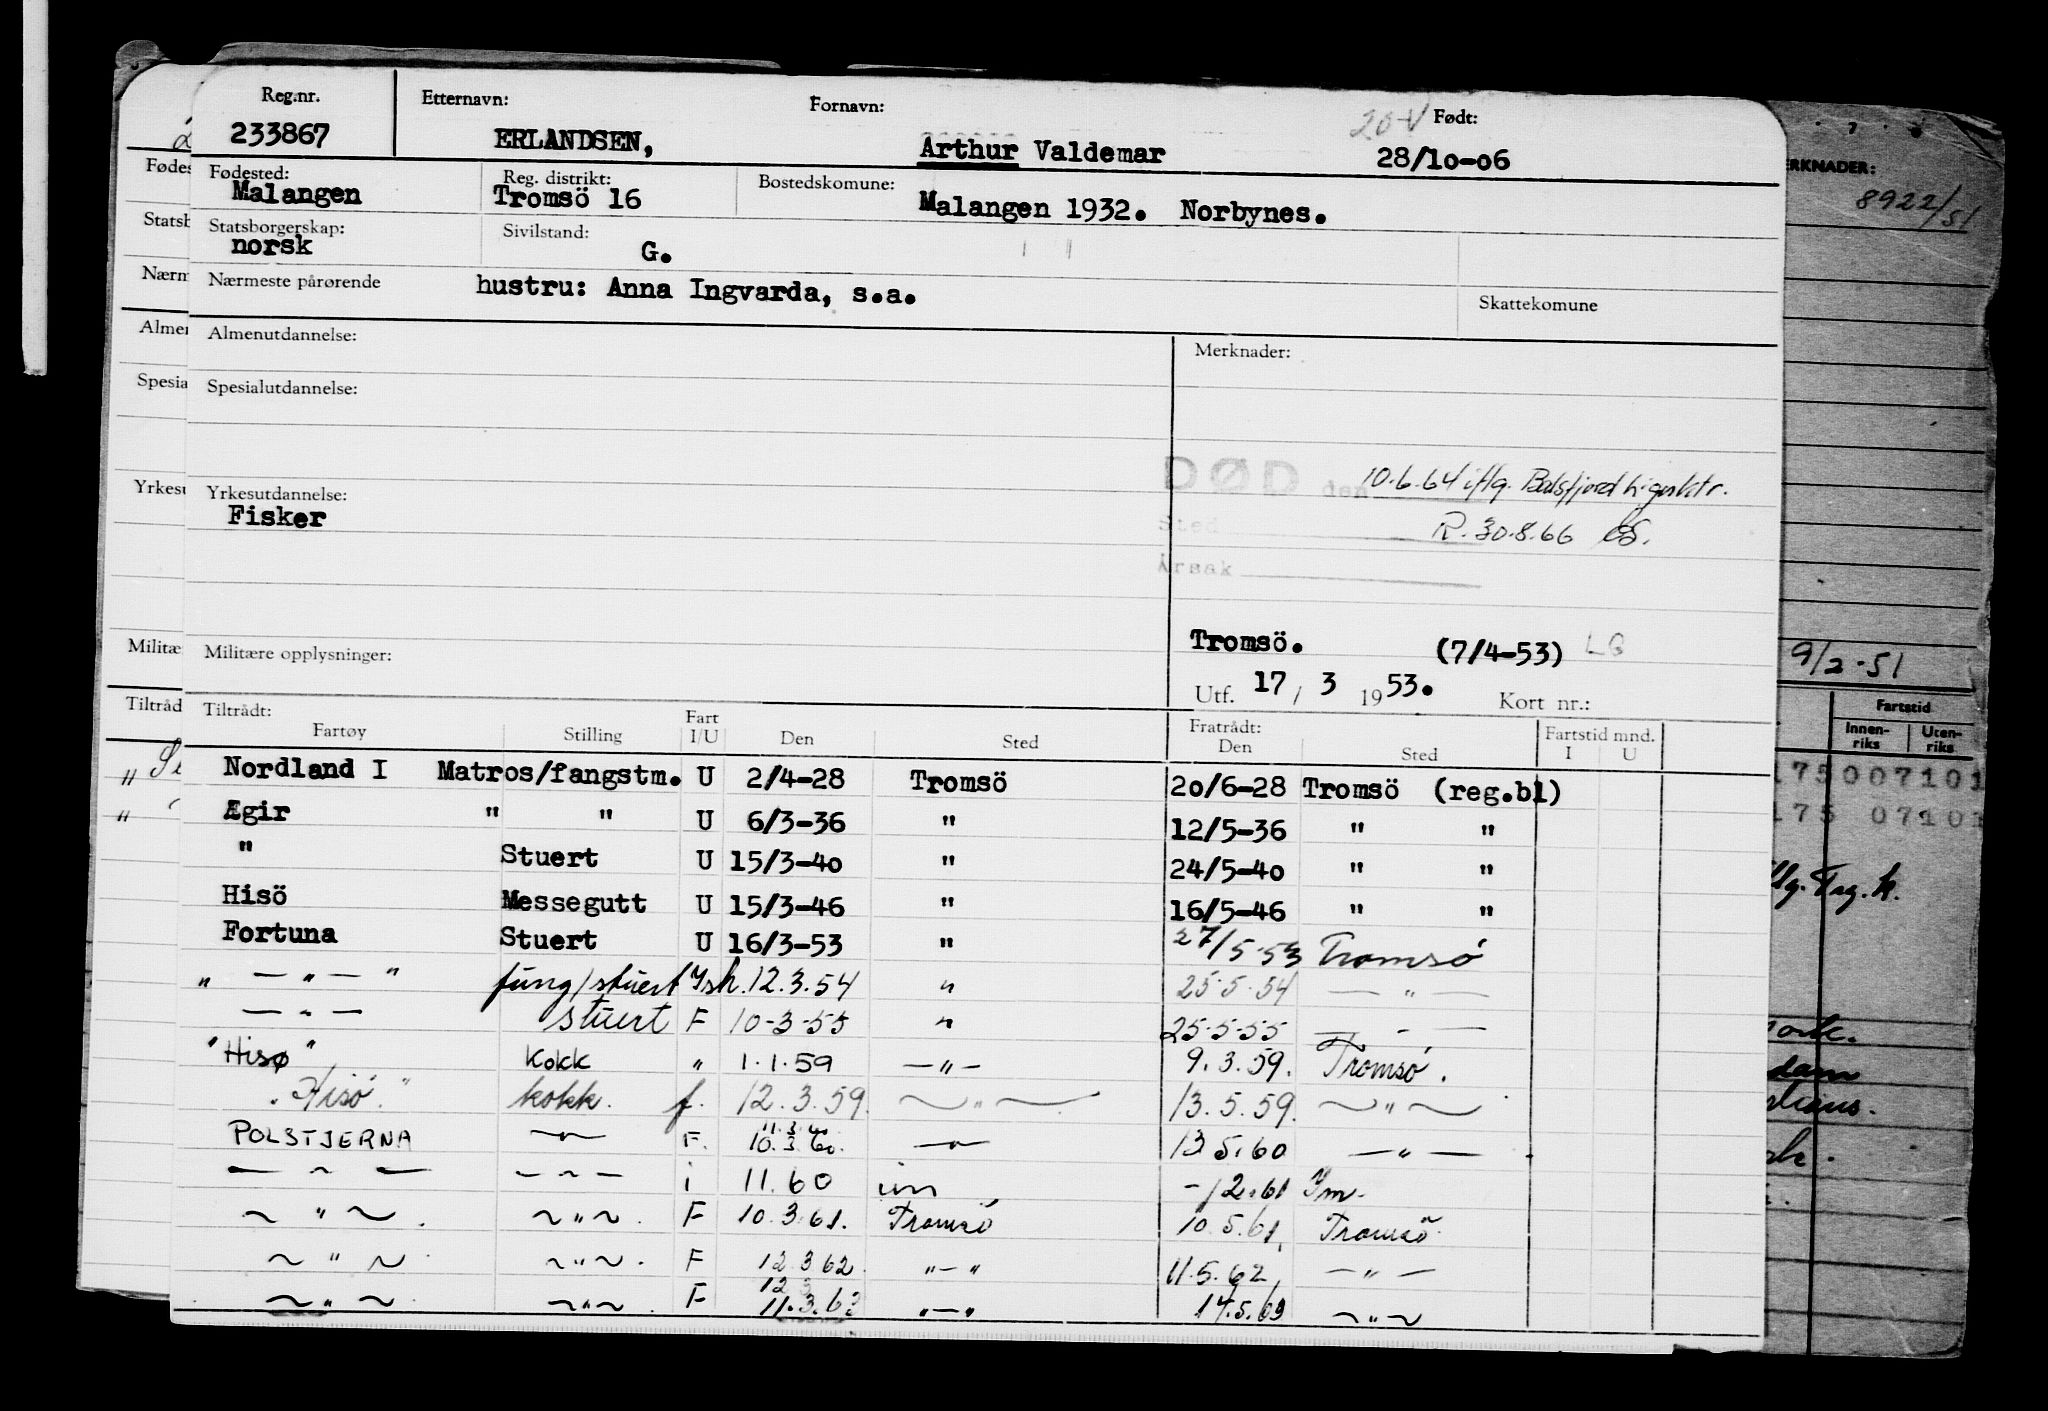 Reg.nr. Etternavn: Fornavn: 20-V Født:
233867 ERLANDSEN, Arthur Valdemar 28/10-06
Fødested: Reg. distrikt: Bostedskomune:
Malangen Tromsö 16 Malangen 1932. Norbynes.
Statsborgerskap: Sivilstand:
norsk G.
Nærmeste pårørende hustru: Anna Ingvarda, s.a. Skattekomune
Almenutdannelse: Merknader:
Spesialutdannelse:
DØD den 10.6.64 iflg. Balsfjord
Yrkesutdannelse:
Fisker
Sted R. 30.8.66
Årsak
Tromsö. (7/4-53) LG
Militære opplysninger:
Utf. 17 / 3 1953. Kort nr.:
Tiltrådt: Fratrådt:
Fartøy Stilling Fart I/U Den Sted Den Sted Fartstid mnd. I U
Nordland I Matros/fangstm. U 2/4-28 Tromsö 20/6-28 Tromsö (reg.bl)
Ægir " " U 6/3-36 " 12/5-36 " "
" Stuert U 15/3-40 " 24/5-40 " "
Hisö Messegutt U 15/3-46 " 16/5-46 " "
Fortuna Stuert U 16/3-53 " 27/5-53 Tromsö
" — " — " fung/stuert Ish. 12.3.54 " 25.5.54 — " —
— " — stuert F 10-3-55 " 25-5-55 — " —
"Hisø" kokk " 1.1.59 — " — 9.3.59. Tromsø.
"Hisö" kokk. f. 12.3.59. — " — 13.5.59. — " —
POLSTJERNA — " — F. 11.3.60 10.3.60. — " — 13.5.60 — " —
— " — — " — i 11.60 inn -12.61 Inn.
— " — — " — F 10.3.61. Tromsö 10.5.61. Tromsö
— " — — " — F 12.3.62 " — " 11.5.62 — " —
— " — — " — F 12.3 11.3.63 " — " 14.5.63 — " —
Fødes
Statsb
Nærm
Almen
Spesia
Yrkesu
Militæ
Tiltråd
ERKNADER:
8922/51
9/2-51
Fartstid
Innen-riks Uten-riks
175007101
175 07101